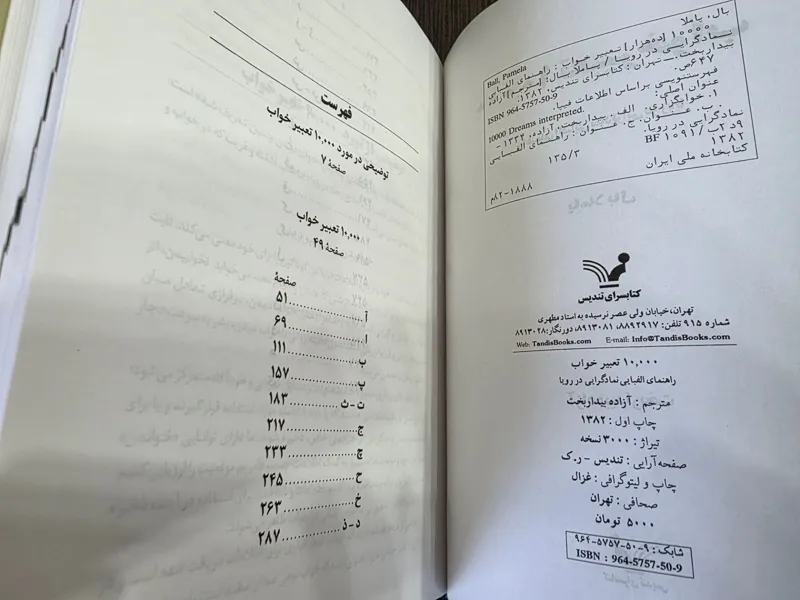 بال، پاملا
Ball, Pamela
۱۰۰۰۰ [ده‌هزار] تعبیر خواب : راهنمای الفبایی
نمادگرایی در رویا / پاملا بال؛ [مترجم] آزاده
بیداربخت. — تهران: کتابسرای تندیس، ۱۳۸۲.
۶۴۷ ص.
ISBN 964-5757-50-9
فهرستنویسی براساس اطلاعات فیپا.
عنوان اصلی: 10000 Dreams interpreted.
۱. خوابگزاری. الف. بیداربخت، آزاده، ۱۳۳۲ -
. ب. عنوان. ج. عنوان: راهنمای الفبایی
نمادگرایی در رویا.
۹د۲ب/۱۰۹۱ BF
۱۳۵/۳
۱۳۸۲
کتابخانه ملی ایران
۱۸۸۸-۸۲م
کتابسرای تندیس
تهران، خیابان ولی عصر نرسیده به استاد مطهری
شماره ۹۱۵ تلفن: ۸۸۹۲۹۱۷، ۸۹۱۳۰۸۱، دورنگار: ۸۹۱۳۰۲۸
Web: TandisBooks.com E-mail: Info@TandisBooks.com
۱۰,۰۰۰ تعبیر خواب
راهنمای الفبایی نمادگرایی در رویا
مترجم : آزاده بیداربخت
چاپ اول : ۱۳۸۲
تیراژ : ۳۰۰۰ نسخه
صفحه‌آرایی : تندیس - ر.ک
چاپ و لیتوگرافی : غزال
صحافی : تهران
۵۰۰۰ تومان
شابک : ۹-۵۰-۵۷۵۷-۹۶۴
ISBN : 964-5757-50-9
فهرست
توضیحی در مورد ۱۰,۰۰۰ تعبیر خواب
صفحهٔ ۷
۱۰,۰۰۰ تعبیر خواب
صفحهٔ ۴۹
صفحهٔ
آ .......... ۵۱
ا .......... ۶۹
ب .......... ۱۱۱
پ .......... ۱۵۷
ت - ث .......... ۱۸۳
ج .......... ۲۱۷
چ .......... ۲۳۳
ح .......... ۲۴۵
خ .......... ۲۶۳
د - ذ .......... ۲۸۷